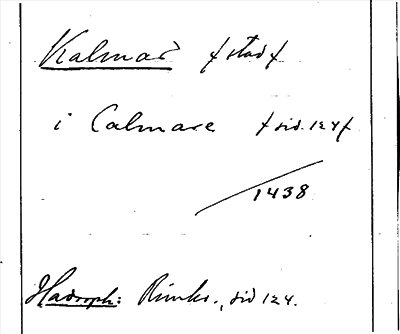 Kalmar / stad /
i Calmare / sid. 124 /
1438
Hadorph: Rimkr., sid 124.